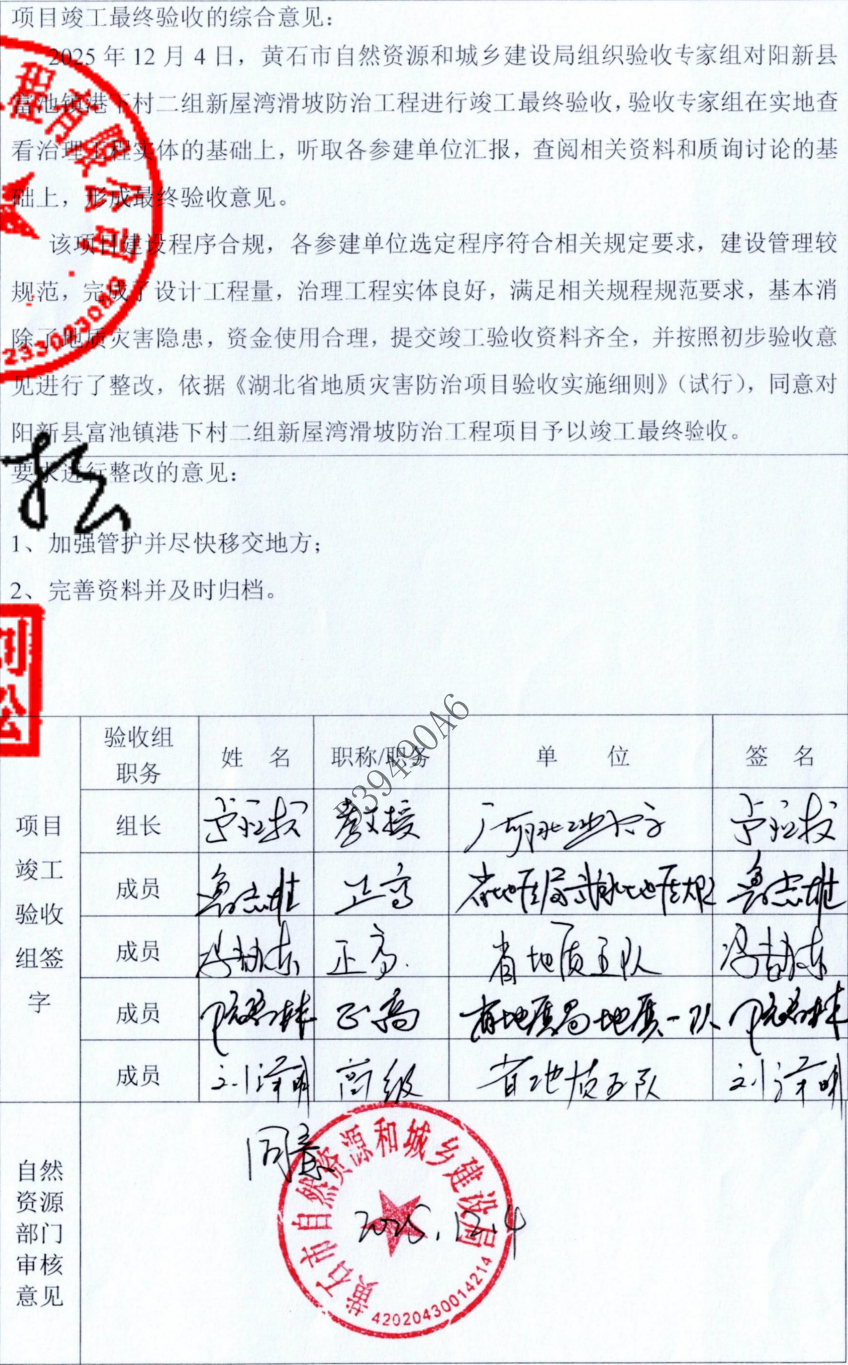 项目竣工最终验收的综合意见：
2025年12月4日，黄石市自然资源和城乡建设局组织验收专家组对阳新县
富池镇港下村二组新屋湾滑坡防治工程进行竣工最终验收，验收专家组在实地查
看治理工程实体的基础上，听取各参建单位汇报，查阅相关资料和质询讨论的基
础上，形成最终验收意见。
该项目建设程序合规，各参建单位选定程序符合相关规定要求，建设管理较
规范，完成了设计工程量，治理工程实体良好，满足相关规程规范要求，基本消
除了地质灾害隐患，资金使用合理，提交竣工验收资料齐全，并按照初步验收意
见进行了整改，依据《湖北省地质灾害防治项目验收实施细则》（试行），同意对
阳新县富池镇港下村二组新屋湾滑坡防治工程项目予以竣工最终验收。
程有限公司
要求进行整改的意见：
松
1、加强管护并尽快移交地方；
2、完善资料并及时归档。
刘松
39490A6
项目竣工验收组签字
验收组职务 姓名 职称/职务 单位 签名
组长 教授
成员 正高
成员 正高 省地质五队
成员 正高 省地质局地质一队
成员 刘泽明 高级 省地质五队 刘泽明
自然资源部门审核意见
同意
黄石市自然资源和城乡建设局
2025.12.4
42020430014214